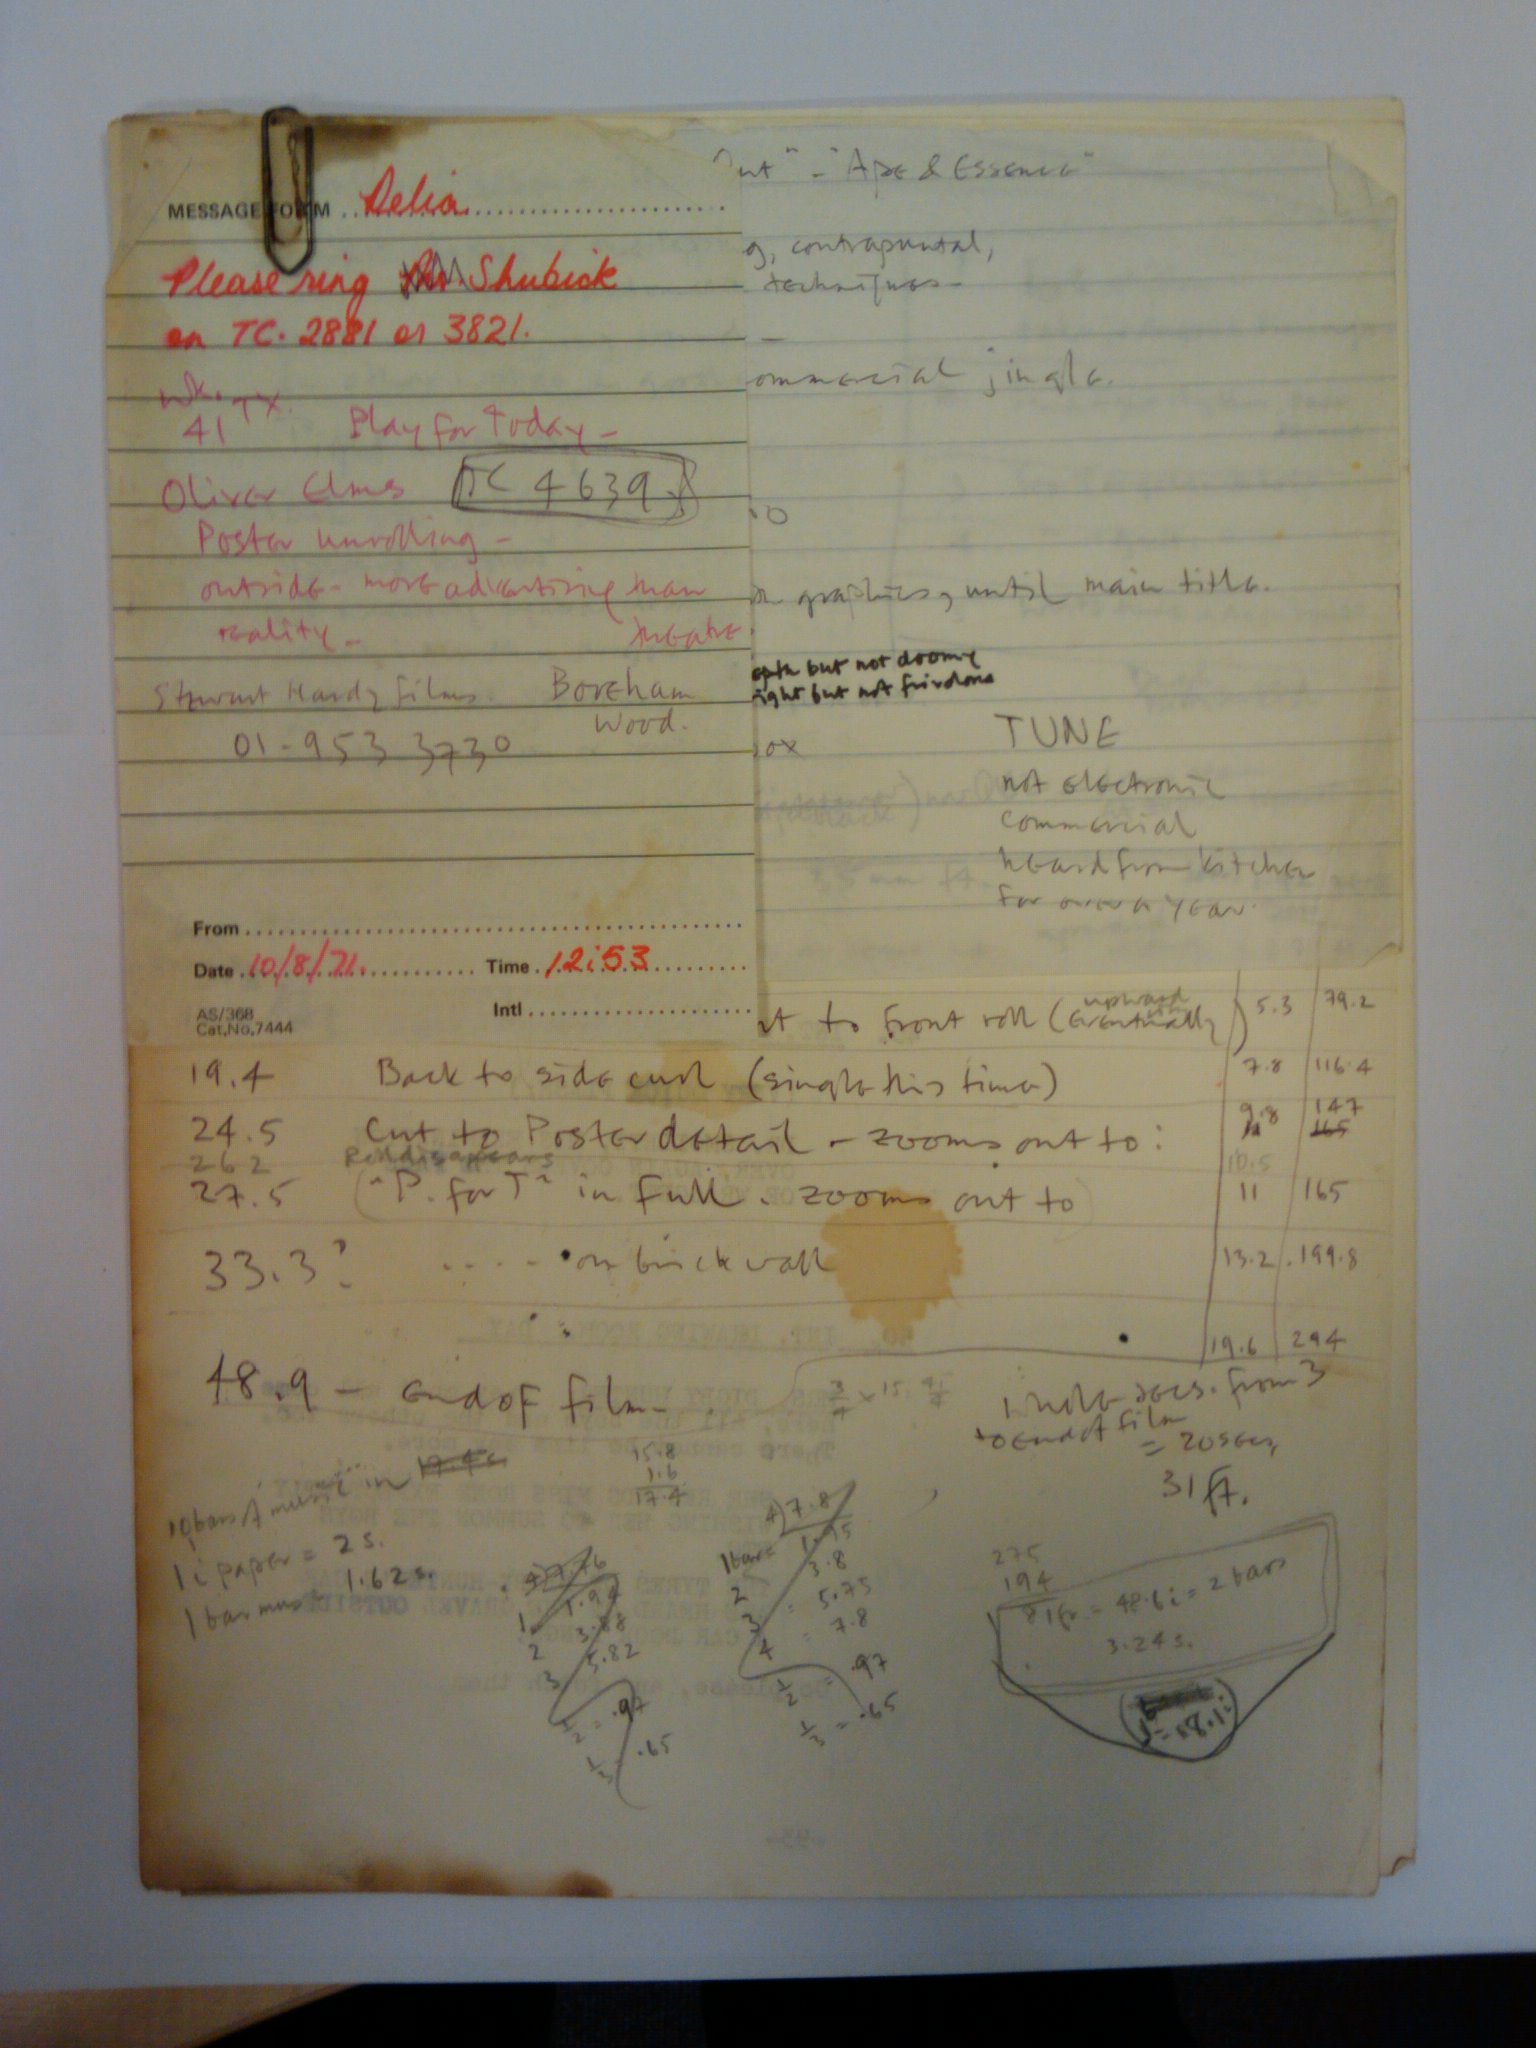 MESSAGE FORM Delia
Please ring Shubick
on TC. 2881 or 3821.
wk. TX.
41 Play for Today -
Oliver Elmes TC 4639
Poster unrolling -
outside - more advertising than
reality - theatre
Stewart Hardy films. Boreham
Wood.
01-953 3730
From
Date 10/8/71. Time 12:53
AS/368
Cat,No,7444
Intl
" - "Ape & Essence"
g, contrapuntal,
techniques -
ommercial jingle.
graphics, until main title.
epth but not doomy
ight but not frivolous
ox
TUNE
not electronic
commercial
heard from kitchen
for over a year.
t to front roll (eventually upward) 5.3 79.2
19.4 Back to side curl (single this time) 7.8 116.4
24.5 Cut to Poster detail - zooms out to: 9.8 147
11 165
26 2 Red disappears 10.5
27.5 ("P. for T" in full. zooms out to) 11 165
33.3? .... on brick wall 13.2 199.8
19.6 294
48.9 - end of film -
secs. from 3
to end of film
= 20 secs,
31 ft.
bars of music in
1 i paper = 2 s.
1 bar music 1.62 s.
15.8
1.6
17.4
4) 7.76
1 1.94
2 3.88
3 5.82
1/2 = .97
1/3 = .65
4) 7.8
1 bar = 1.95
2 3.8
3 = 5.75
4 = 7.8
1/2 = .97
1/3 = .65
275
194
81 fr. = 48.6 i = 2 bars
3.24 s.